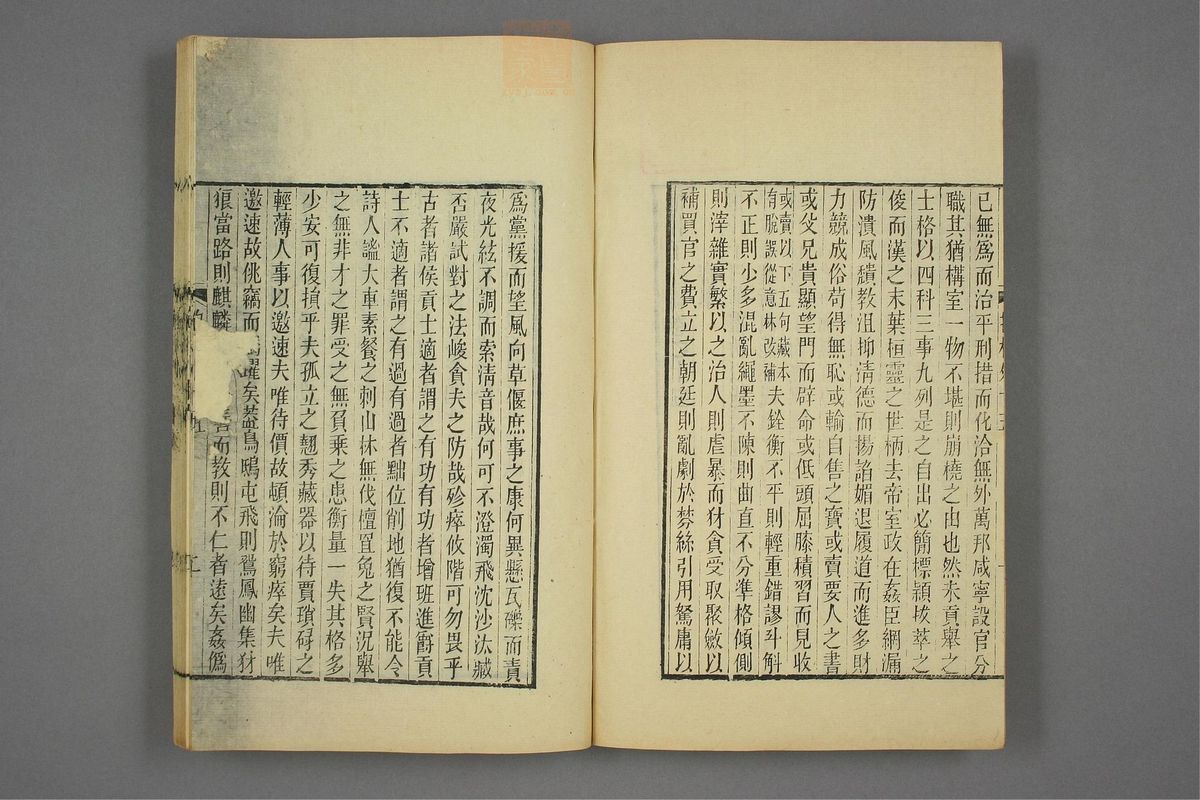 已無爲而治平刑措而化洽無外萬邦咸寧設官分
職其猶構室一物不堪則崩橈之由也然夫貢舉之
士格以四科三事九列是之自出必簡標穎拔萃之
俊而漢之末葉桓靈之世柄去帝室政在姦臣網漏
防潰風穨敎沮抑淸德而揚諂媚退履道而進多財
力競成俗苟得無恥或輸自售之寶或賣要人之書
或父兄貴顯望門而辟命或低頭屈膝積習而見收
或賣以下五句藏本
有脫誤從意林改補
夫銓衡不平則輕重錯謬斗斛
不正則少多混亂繩墨不陳則曲直不分準格傾側
則滓雜實繁以之治人則虐暴而豺貪受取聚斂以
補買官之費立之朝廷則亂劇於棼絲引用駑庸以
爲黨援而望風向草偃庶事之康何異懸瓦礫而責
夜光絃不調而索淸音哉何可不澄濁飛沈沙汰臧
否嚴試對之法峻貪夫之防哉殄瘁攸階可勿畏乎
古者諸侯貢士適者謂之有功有功者增班進爵貢
士不適者謂之有過有過者黜位削地猶復不能令
詩人謐大車素餐之刺山林無伐檀罝兔之賢況舉
之無非才之罪受之無負乘之患衡量一失其格多
少安可復損乎夫孤立之翹秀藏器以待賈瑣碌之
輕薄人事以邀速夫唯待價故頓淪於窮瘁矣夫唯
邀速故佻竊而躍矣蓋鳥鴟屯飛則鴛鳳幽集豺
狼當路則麒麟善而敎則不仁者遠矣姦僞